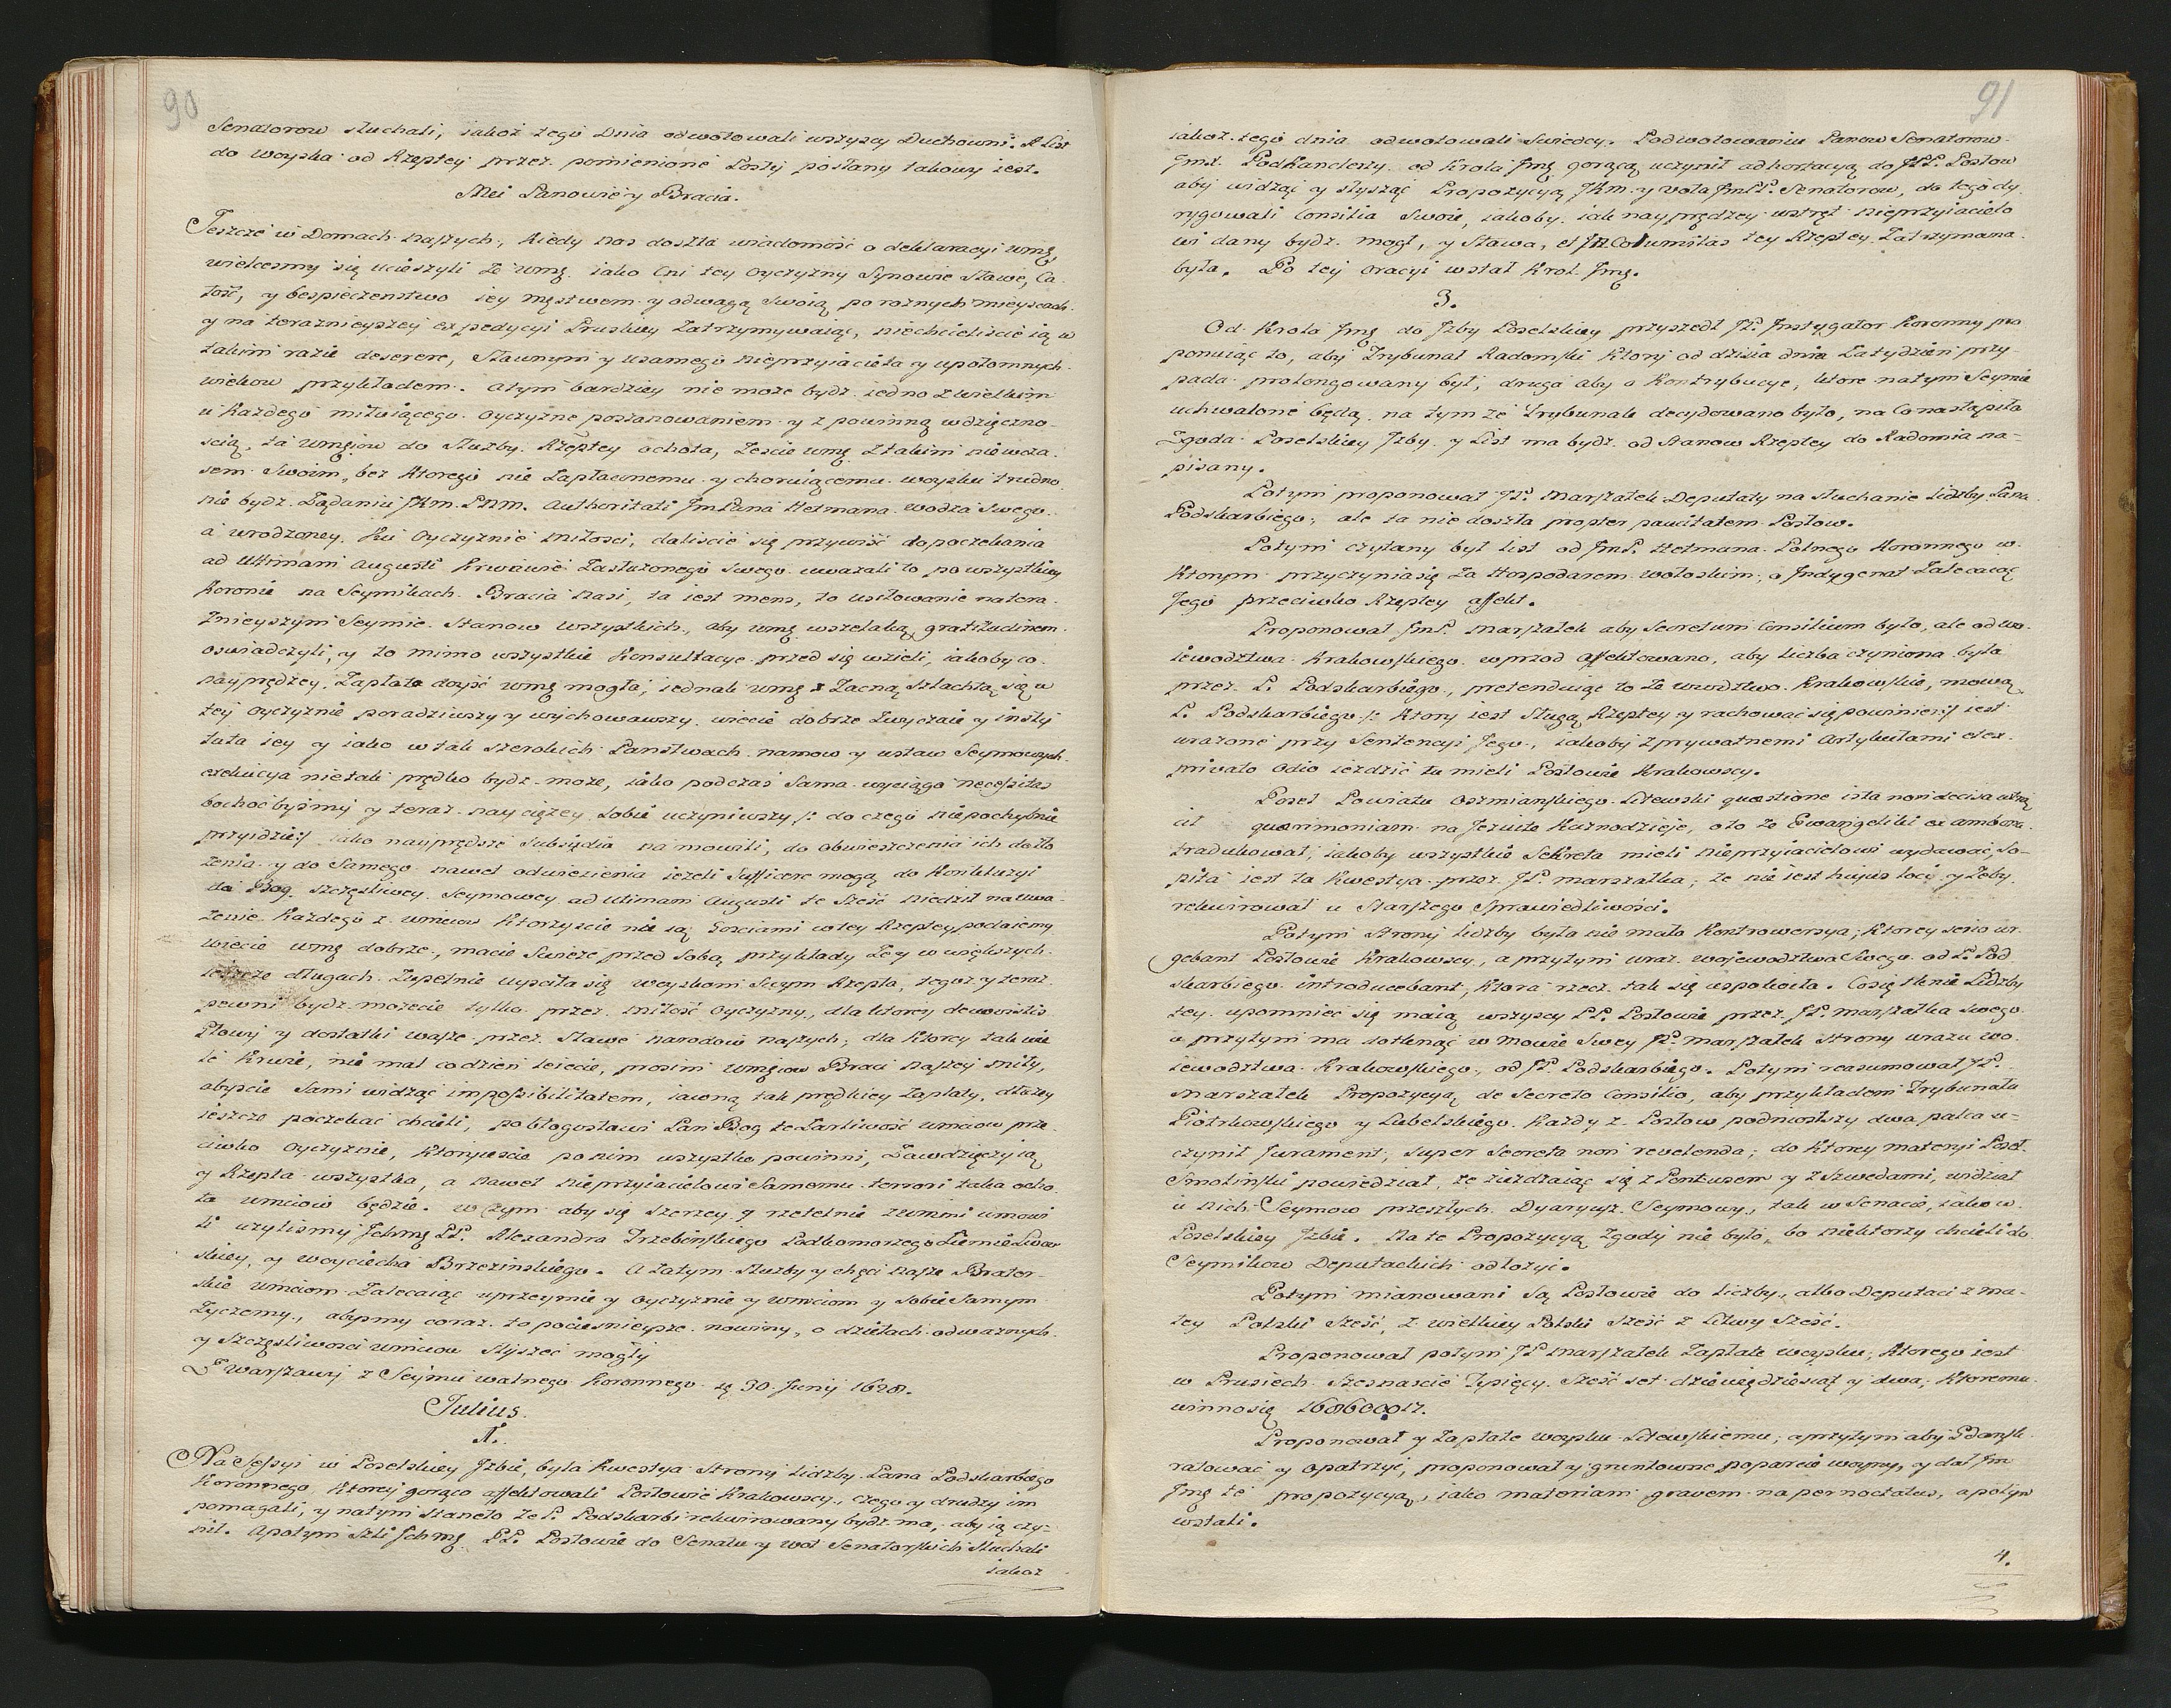 90
Senatorow słuchali, iakoż tego Dnia odwotowali wszyscy Duchowni. A List
do woyska od Rzeptey przez pomienione Posły posłany takowy iest.
Mci Panowie y Bracia.
Jeszcze w Domach naszych, kiedy nas doszła wiadomość o deklaracyi wmę,
wielcesmy się ucieszyli że wmę iako Cni tey oyczyzny Synowie Sławę, Ca-
łość, y bespieczenstwo iey męstwem y odwagą swoią po rożnych mieyscach
y na teraznieyszey expedycyi Pruskiey zatrzymywaiąc, niechcieliscie ią w
takim razie deserere, sławnym y usamego nieprzyiaciela y upotomnych
wiekow przykładem. Atym bardziey nie może bydz iedno z wielkim
u każdego miłuiącego oyczyznę poszanowaniem y z powinną wdzięczno-
scią, ta wmęiow do służby Rzeptey ochota, żescie wmę z takim niewcza-
sem swoim, bez ktorego nie zapłaconemu y choruiącemu woysku trudno
nie bydz. Żądaniu JKm. P.N.M. Authoritati JmPana Hetmana wodza swego
a wrodzoney ku oyczyznie miłosci, daliscie się przywiść do poczekania
ad Ultimam Augusti krwawie zasłużonego swego uważali to po wszystkiey
koronie na Seymikach Bracia nasi, ta iest mens, to usiłowanie natera-
znieyszym Seymie Stanow wszystkich, aby wmę wszelaką gratitudinem
oswiadczyli, y to mimo wszystkie konsultacye przed się wzieli, iakoby co
nayprędzey zapłata doyść wmę mogła, iednak wmę z zacną szlachtą się w
tey oyczyznie poradziwszy y wychowawszy, wiecie dobrze zwyczaie y insty
tuta iey y iako w tak szerokich Panstwach namow y ustaw Seymowych
exekucya nietak prędko bydz może, iako podczas sama wyciąga necessitas
bochoć byśmy y teraz nayciężey sobie uczyniwszy /: do czego niepochybnie
przyidzie:/ iako nayprędsze subsydia na mowili, do obwieszczenia ich doło
żenia y do samego nawet odwiezienia ieżeli sufficere mogą do konkluzyi
da Bog szczęśliwey Seymowey ad ultimam Augusti te sześć niedziel na uwa-
żenie każdego z wmciow ktorzyscie nie są gosciami w tey Rzeptey podaiemy
wiecie wmę dobrze, macie swieże przed sobą przykłady żey w większych
ieszcze długach zupełnie wypłaca się woyskom swym Rzepta, tegoż y teraz
pewni bydz możecie tylko przez miłość oyczyzny, dla ktorey dewovistis
Głowy y dostatki wasze przez sławę narodow naszych, dla ktorey tak wie
le krwie, nie mal codzien leiecie, prosim wmęiow Braci naszey miły,
abyscie sami widząc impossibilitatem, iawną tak prędkiey zapłaty, dłużey
ieszcze poczekać chcieli, pobłogosławi Pan Bog te żarliwość wmciow prze-
ciwko oyczyznie, ktorzyescie po nim wszystko powinni, zawdzięczy ią
y Rzepta wszystka, a nawet nieprzyiacielowi samemu terrori taka ocho-
ta wmciow będzie. w czym aby się szerzey y rzetelnie zwmmi umowi
li użylismy Ichmę PP. Alexandra Trzebinskiego Podkomorzego Ziemie Lwow
skiey, y Woyciecha Brzezinskiego. A zatym służby y chęci nasze Brater-
skie wmciom zalecaiąc uprzeymie y oyczyznie y wmciom y sobie samym
życzemy, abysmy coraz to pociesznieysze nowiny, o dziełach odważnych
y szczęsliwosci wmciow słyszeć mogli
z Warszawy z Seymu walnego koronnego 30. Junij 1628.
Julius.
1.
Na Sessyi w Poselskiey Izbie, była kwestya strony Liczby Pana Podskarbiego
Koronnego, ktorey gorąco affektowali Posłowie Krakowscy, czego y drudzy im
pomagali, y natym staneło że P. Podskarbi rekwirowany bydz ma, aby ią czy-
nił. Apotym szli Ichmę PP. Posłowie do Senatu y wot Senatorskich słuchali
iakoż
91
iakoż tego dnia odwotowali Swieccy. Podwotowaniu Panow Senatorow
Jmx. Podkanclerzy od Krola Jmę gorącą uczynił adhortacyą do JPP. Posłow
aby widząc y słysząc Propozycyą JKm. y vota JmPP. Senatorow, do tego dy
rygowali Consilia swoie, iakoby iak nayprędzey wstręt nieprzyiacielo
wi dany bydz mogł, y Sława, et Incolumitas tey Rzeptey zatrzymana
była. Po tey oracyi wstał Krol Jmę.
3.
Od Krola Jmę do Izby Poselskiey przyszedł JP. Instygator Koronny pro
ponuiąc to, aby Trybunał Radomski ktory od dzisia dnia za tydzien przy-
pada prolongowany był, druga aby o Kontrybucye, ktore natym Seymie
uchwalone będą na tym że Trybunale decydowano było, na Co nastąpiła
Zgoda Poselskiey Izby y List ma bydz od Stanow Rzeptey do Radomia na=
pisany.
Potym proponował JP. Marszałek Deputaty na słuchanie Liczby Pana
Podskarbiego; ale ta nie doszła propter paucitatem Posłow.
Potym czytany był list od JmP. Hetmana Polnego Koronnego w
ktorym przyczynia się za Hospodarem Wołoskim, o Indygenat zalecaiąc
Jego przeciwko Rzeptey affekt.
Proponował JmP. Marszałek aby Secretum Consilium było, ale od wo-
iewodztwa Krakowskiego wprzod affektowano, aby liczba czyniona była
przez P. Podskarbiego, pretenduiąc to że wwodztwo Krakowskie, mową
P. Podskarbiego /: ktory iest sługą Rzeptey y rachować się powinien:/ iest
urażone przy Sentencyi Jego, iakoby z prywatnemi artykułami et ex
privato odio ieździć tu mieli Posłowie Krakowscy.
Poseł Powiatu Oszmianskiego Litewski quæstione ista non decisa
cit querimoniam na Jezuitę Kaznodzieię, oto że Ewangeliki ex ambona
tradukował, iakoby wszystkie Sekreta mieli nieprzyiacielowi wydawać, So-
pita iest ta kwestya przez JP. marszałka; że nie iest huius loci y żeby
rekwirował u Starszego Sprawiedliwości.
Potym strony liczby była nie mała kontrowersya; ktorey serio ur
gebant Posłowie Krakowscy, a przytym uraz wojewodztwa swego od P. Pod
skarbiego introducebant, ktora rzecz tak się uspokoiła. Co się tknie Liczby
tey upomnieć się maią wszyscy PP. Posłowie przez JP. Marszałka swego
a przytym ma dotknąć w mowie swey JP. Marszałek strony urazu wo
iewodztwa Krakowskiego, od JP. Podskarbiego. Potym reasumował JP.
Marszałek Propozycyą de Secreto Consilio, aby przykładem Trybunału
Piotrkowskiego y Lubelskiego każdy z Posłow podniosszy dwa palca u=
czynił Jurament, super Secreta non revelenda; do ktorey materyi Poseł
Smolinski powiedział, że zieżdżaiąc się z Pontusem y z Szwedami, widział
u nich Seymow przeszłych Dyaryusz Seymowy, tak w Senacie, iako w
Poselskiey Izbie. Na te Propozycyą zgody nie było, bo niektorzy chcieli do
Seymikow Deputackich odłożyć.
Potym mianowani są Posłowie do liczby, albo Deputaci z ma-
łey Polski sześć, z wielkiey Polski sześć z Litwy sześć.
Proponował potym JP Marszałek zapłatę woysku, ktorego iest
w Prusiech szesnascie Tysięcy sześć set dziewięcdziesiąt y dwa, ktoremu
winno się
Proponował y zapłatę woysku Litewskiemu; aprzytym aby Gdansk
ratować y opatrzyć, proponował y gruntowne poparcie woyny, y dał Im
Jmę te propozycyą, iako materiam gravem na pernoctatus, apotym
wstali.
4.